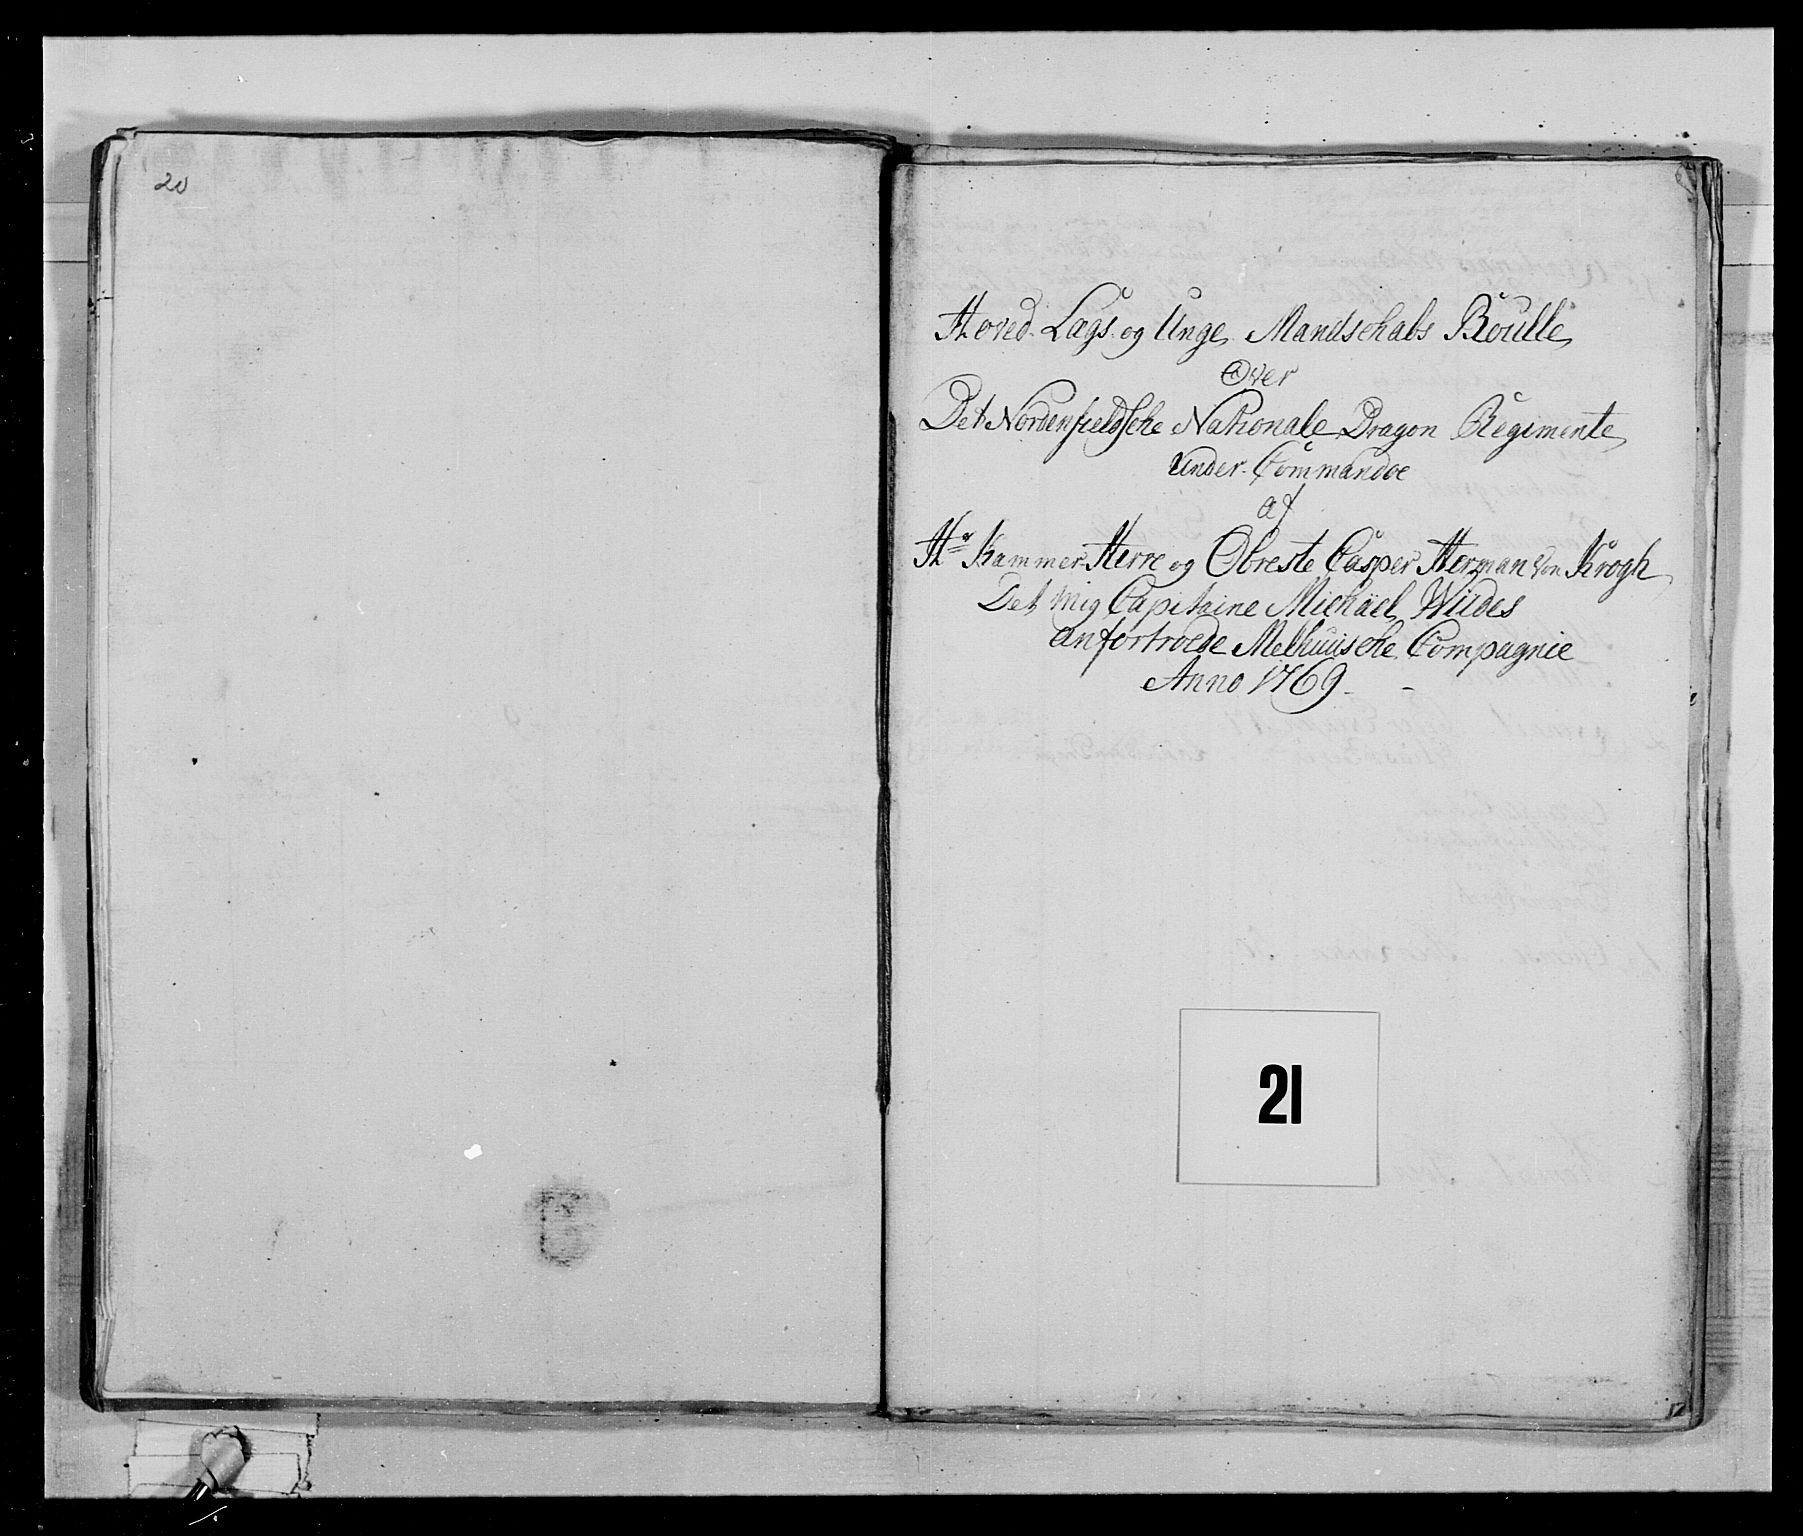 20
Hoved. Lægs. og Unge Mandschabs Roulle
Over
Det Nordenfieldsche Nationale Dragon Regimente
Under Commandoe
af
Hr Kammer Herre og Obreste Casper Herman von Krogh
Det mig Capitaine Michäel Wildes
anfortroede Melhuusche Compagnie
Anno 1769
21